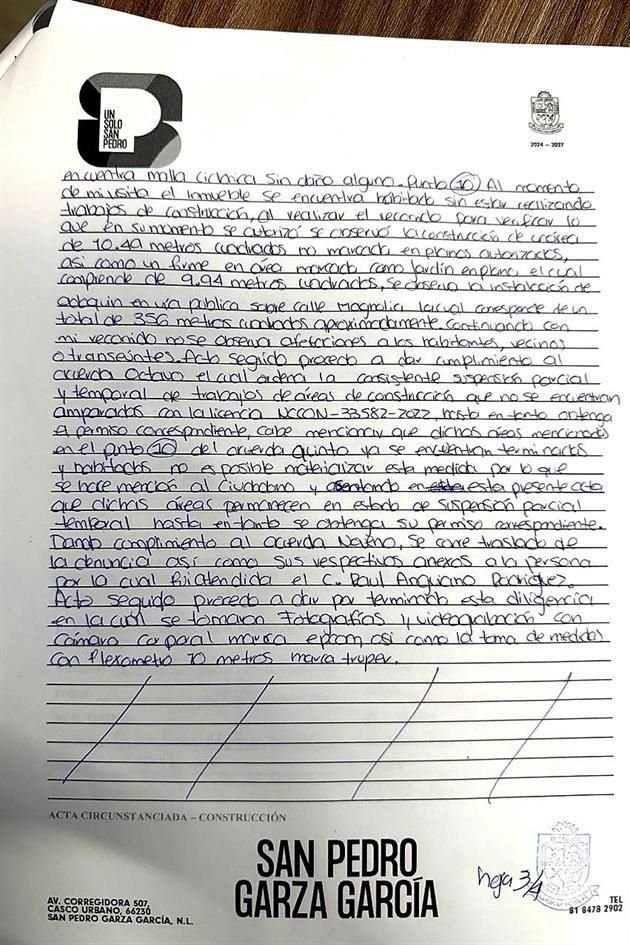 UN
SOLO
SAN
PEDRO
2024 – 2027
encuentra malla ciclonica sin daño alguno. Punto 10 Al momento
de mi visita el inmueble se encuentra habitado sin estar realizando
trabajos de construcción, al realizar el recorrido para verificar lo
que en su momento se autorizó se observó la construcción de un área
de 10.49 metros cuadrados no marcada en planos autorizados,
asi como un firme en área marcada como Jardín en plano, el cual
comprende de 9.94 metros cuadrados, se observa la instalación de
adoquin en via publica sobre calle Magnolia la cual corresponde de un
total de 356 metros cuadrados aproximadamente. Continuando con
mi recorrido no se observa afectaciones a los habitantes, vecinos
o transeúntes. Acto seguido procedo a dar cumplimiento al
acuerdo Octavo el cual ordena la consistente suspensión parcial
y temporal de trabajos de áreas de construcción que no se encuentran
amparados con la licencia NCCON-33582-2022, hasta en tanto obtenga
el permiso correspondiente, cabe mencionar que dichas áreas mencionadas
en el punto 10 del acuerdo quinto ya se encuentran terminadas
y habitados no es posible materializar esta medida por lo que
se hace mención al Ciudadano y asentando en esta presente acta
que dichas áreas permanecen en estado de suspensión parcial
temporal hasta en tanto se obtenga su permiso correspondiente.
Dando cumplimiento al acuerdo Noveno, se corre traslado de
la denuncia asi como sus respectivos anexos a la persona
por la cual fui atendida el C. Raul Anguiano Rodriguez.
Acto seguido procedo a dar por terminada esta diligencia
en la cual se tomaron Fotografías y videograbación con
Cámara corporal marca epcom, asi como la toma de medidas
con flexometro 10 metros marca truper.
ACTA CIRCUNSTANCIADA – CONSTRUCCIÓN
SAN PEDRO
GARZA GARCÍA
hoja 3/4
AV. CORREGIDORA 507,
CASCO URBANO, 66230
SAN PEDRO GARZA GARCÍA, N.L.
TEL
81 8478 2902